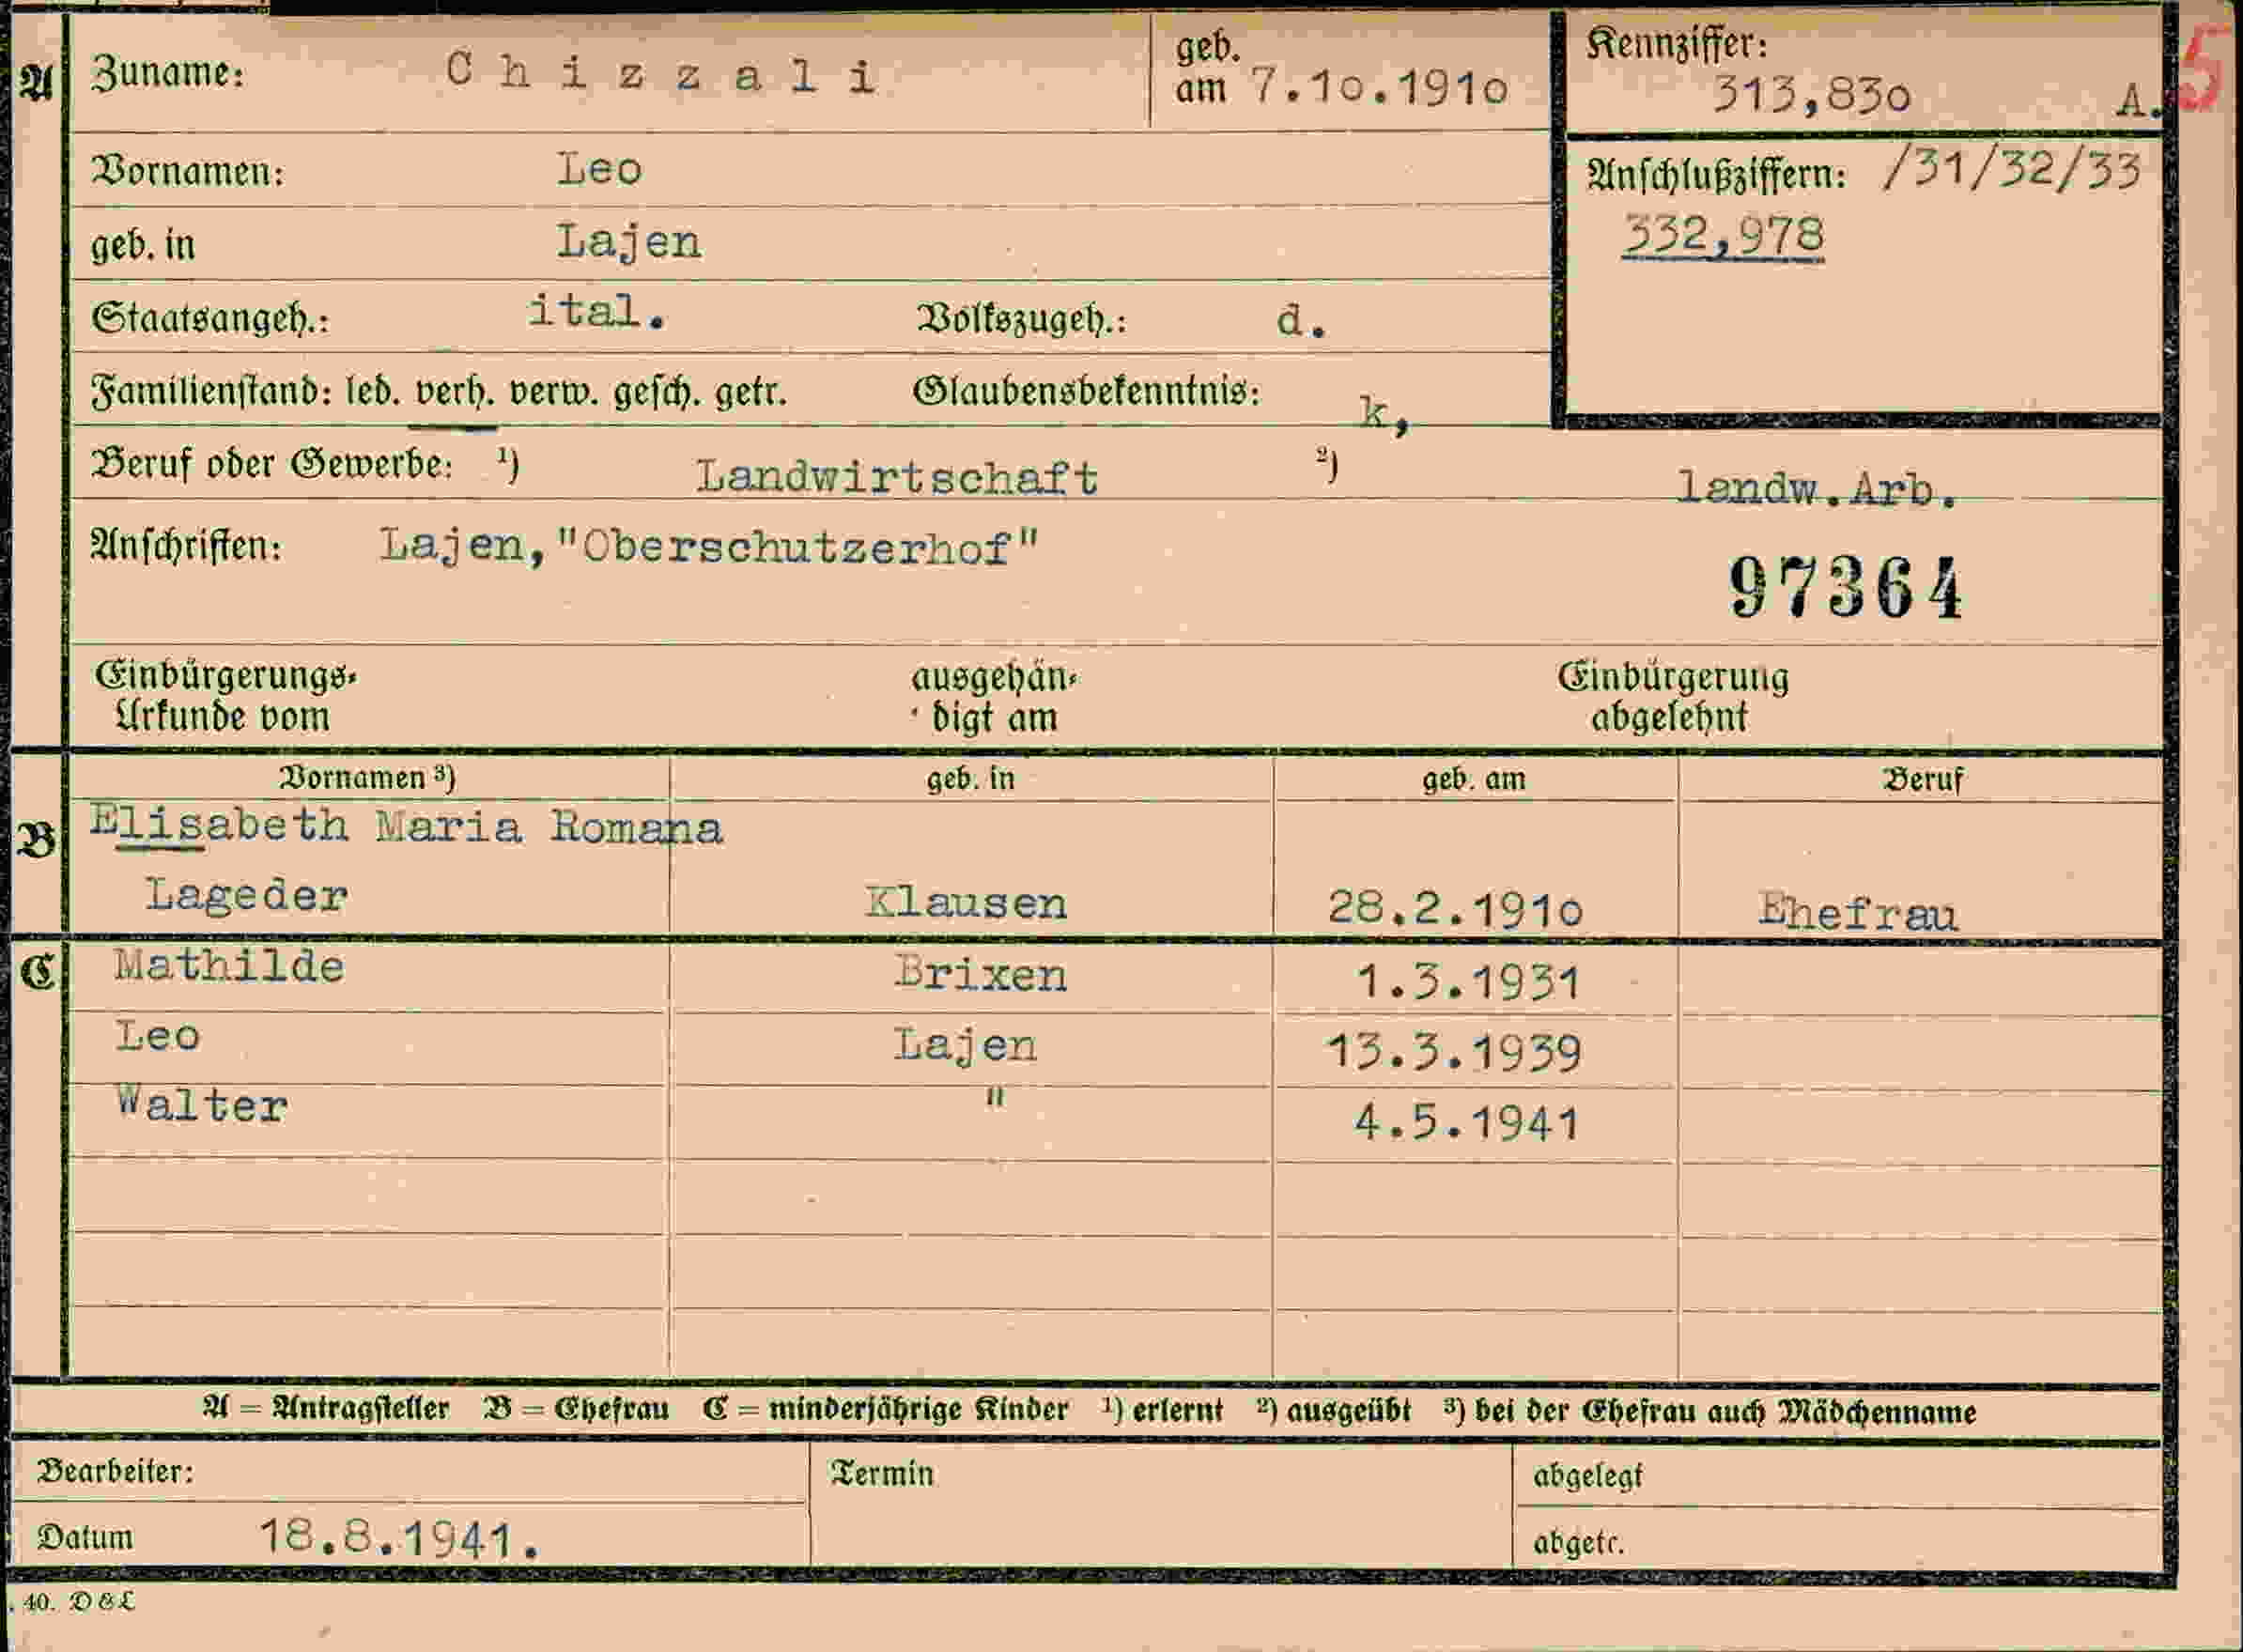 A Zuname: Chizzali geb. am 7.10.1910 Kennziffer: 313,830 A. 5
Vornamen: Leo Anschlußziffern: /31/32/33
geb. in Lajen 332,978
Staatsangeh.: ital. Volkszugeh.: d.
Familienstand: led. verh. verw. gesch. getr. Glaubensbekenntnis: k,
Beruf oder Gewerbe: ¹) Landwirtschaft ²) landw.Arb.
Anschriften: Lajen,"Oberschutzerhof"
97364
Einbürgerungs- ausgehän- Einbürgerung
Urkunde vom digt am abgelehnt
Vornamen ³) geb. in geb. am Beruf
B Elisabeth Maria Romana
Lageder Klausen 28.2.1910 Ehefrau
C Mathilde Brixen 1.3.1931
Leo Lajen 13.3.1939
Walter " 4.5.1941
A = Antragsteller B = Ehefrau C = minderjährige Kinder ¹) erlernt ²) ausgeübt ³) bei der Ehefrau auch Mädchenname
Bearbeiter: Termin abgelegt
Datum 18.8.1941. abgetr.
. 40. D & L